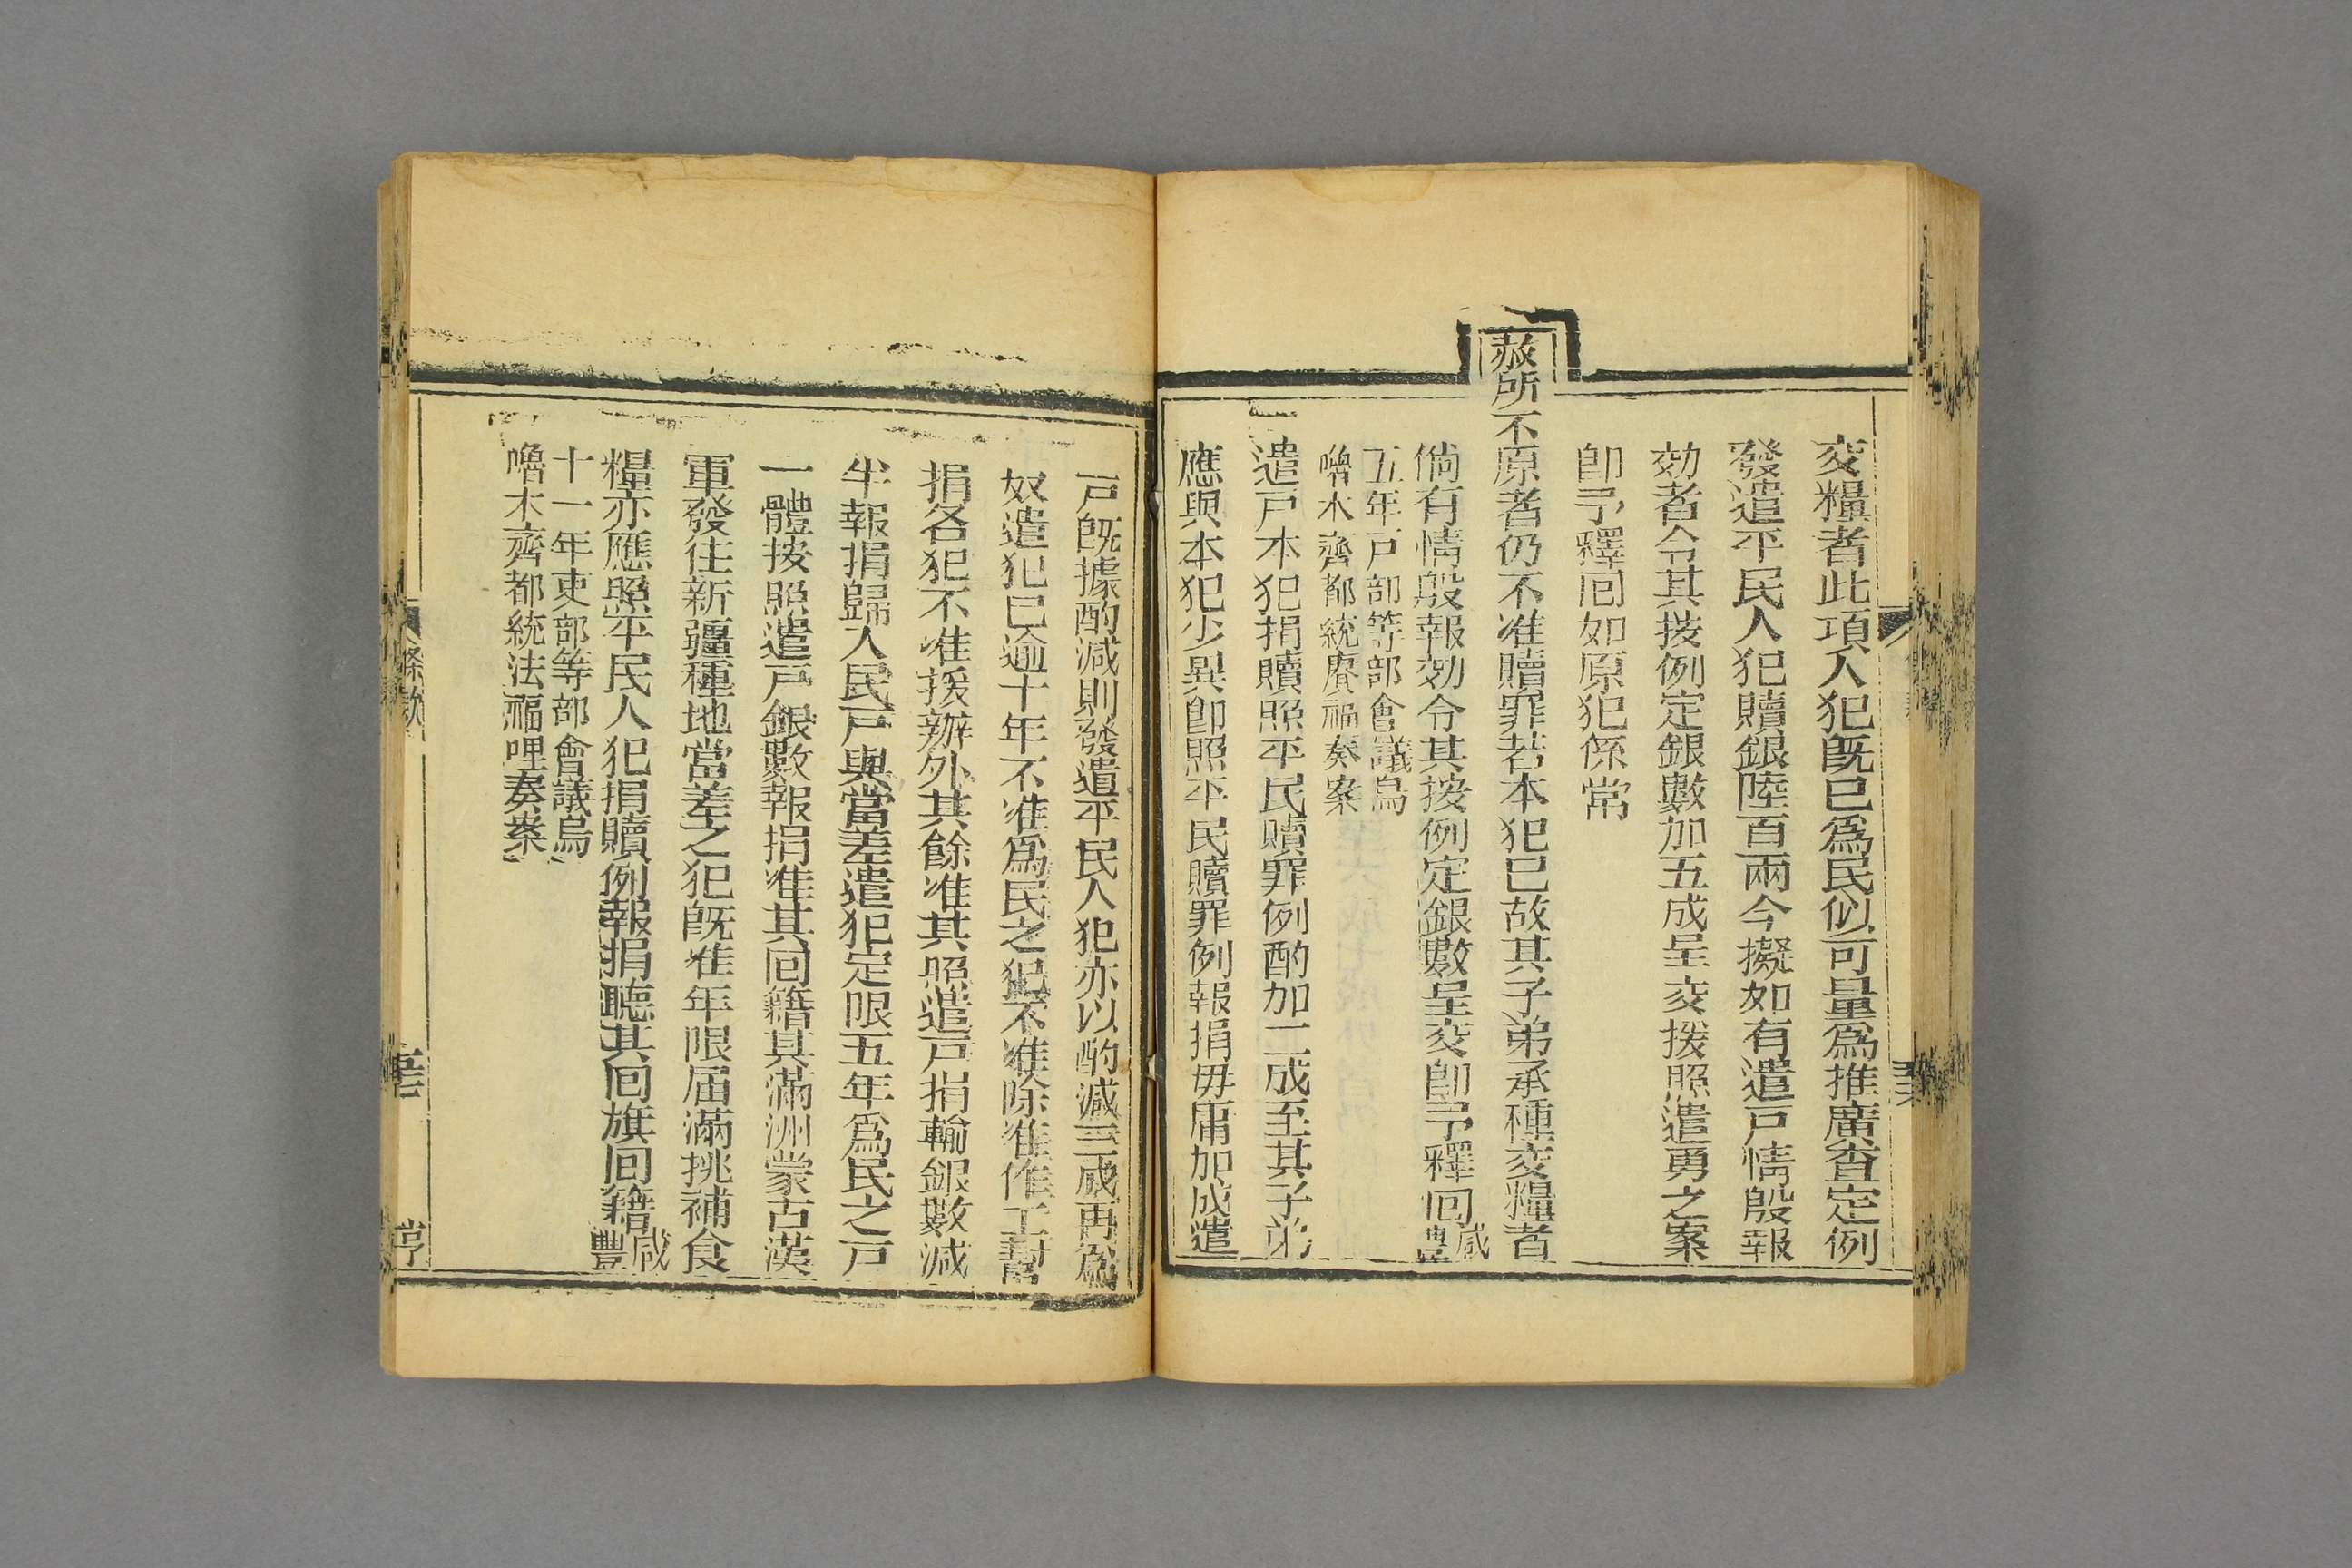 交糧者此項人犯既已爲民似可量爲推廣查定例
發遣平民人犯贖銀陸百兩今擬如有遣戸情殷報
効者令其按例定銀數加五成呈交援照遣勇之案
卽予釋囘如原犯係常
赦所不原者仍不准贖罪若本犯已故其子弟承種交糧者
倘有情殷報効令其按例定銀數呈交卽予釋囘咸豐
五年戸部等部會議烏
嚕木齊都統賡福奏案
遣戸本犯捐贖照平民贖罪例酌加二成至其子弟
應與本犯少異卽照平民贖罪例報捐毋庸加成遣
戸既據酌減則發遣平民人犯亦以酌減三成再爲
奴遣犯已逾十年不准爲民之犯不准除准作工幫
捐各犯不准援辦外其餘准其照遣戸捐輸銀數減
半報捐歸入民戸與當差遣犯定限五年爲民之戸
一體按照遣戸銀數報捐准其囘籍其滿洲蒙古漢
軍發往新疆種地當差之犯既准年限届滿挑補食
糧亦應照平民人犯捐贖例報捐聽其囘旗囘籍咸豐
十一年吏部等部會議烏
嚕木齊都統法福哩奏案
條款
亨